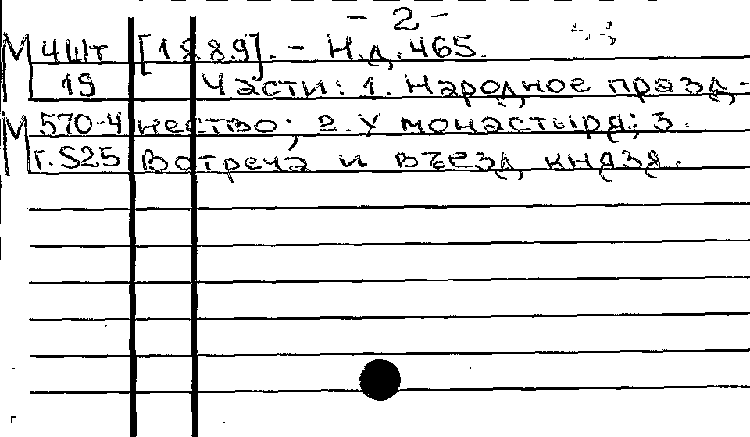 - 2 -
М 4шт [1889]. - Н.д. 465.
19 Части: 1. Народное празд-
М 570-4 нество; 2. У монастыря; 3.
г. 525 Встреча и въезд князя.